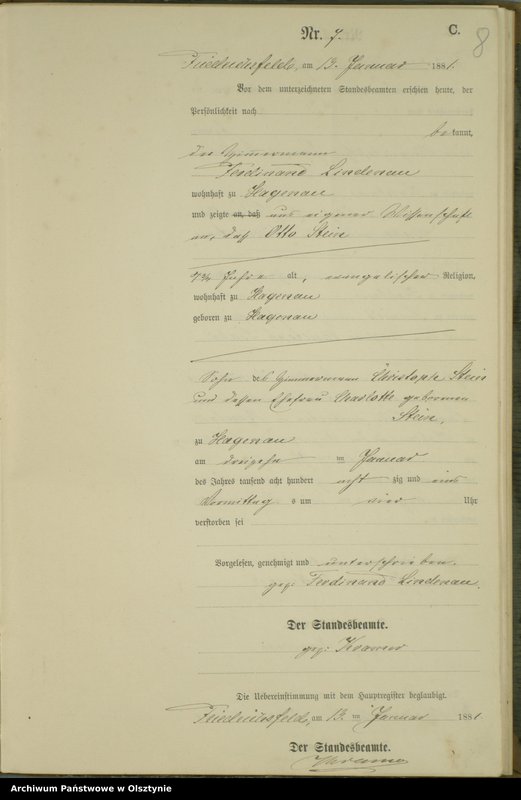 Nr. 7.
C.
8
Friedrichsfelde, am 13. Januar 1881.
Vor dem unterzeichneten Standesbeamten erschien heute, der
Persönlichkeit nach
bekannt,
der Zimmermann
Ferdinand Lindenau
wohnhaft zu Hagenau
und zeigte an, daß aus eigener Wissenschaft
an, daß Otto Stein
7¾ Jahre alt, evangelischer Religion,
wohnhaft zu Hagenau
geboren zu Hagenau
Sohn des Zimmermann Christoph Stein
und dessen Ehefrau Charlotte geborenen
Stein,
zu Hagenau
am dreizehn ten Januar
des Jahres tausend acht hundert acht zig und eins
Vormittag s um vier Uhr
verstorben sei
Vorgelesen, genehmigt und unterschrieben.
gez: Ferdinand Lindenau.
Der Standesbeamte.
gez: Kramer
Die Uebereinstimmung mit dem Hauptregister beglaubigt.
Friedrichsfelde, am 13. ten Januar 1881
Der Standesbeamte.
Kramer
Archiwum Państwowe w Olsztynie